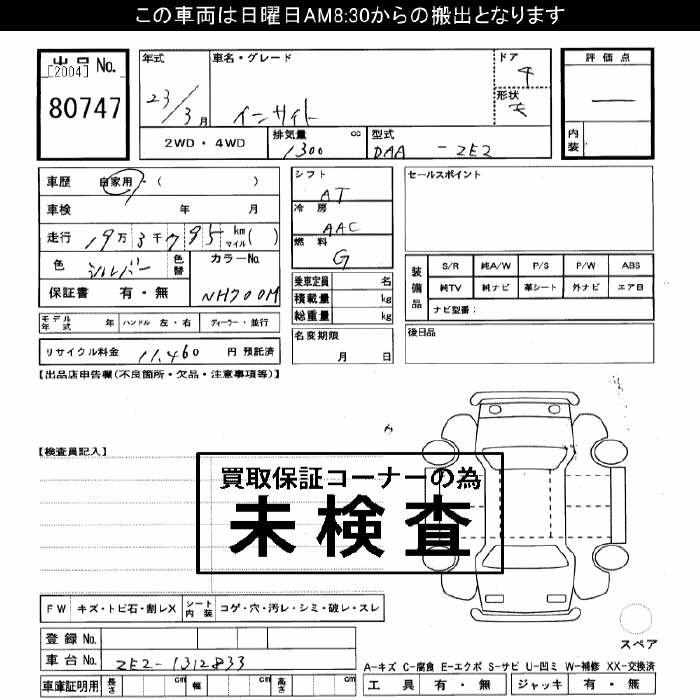 この車両は日曜日AM8:30からの搬出となります
出品 No.
[2004]
80747
年式
23/3月
車名・グレード
インサイト
ドア
4
形状
評価点
内装
2WD・4WD
排気量 cc
1300
型式
DAA - ZE2
車歴 自家用・( )
車検 年 月
走行 19万3千795 km マイル( )
色 シルバー 色替 カラーNo.
保証書 有・無 NH700M
モデル年式 年 ハンドル 左・右 ディーラー・並行
リサイクル料金 11,460 円 預託済
シフト
AT
冷房
AAC
燃料
G
乗車定員 名
積載量 kg
総重量 kg
名変期限
月 日
セールスポイント
装備品
S/R 純A/W P/S P/W ABS
純TV 純ナビ 革シート 外ナビ エアB
ナビ型番:
後日品
【出品店申告欄(不良箇所・欠品・注意事項等)】
【検査員記入】
買取保証コーナーの為
未検査
FW キズ・トビ石・割レX シート内装 コゲ・穴・汚レ・シミ・破レ・スレ
登録 No.
車台 No. ZE2-1312833
車庫証明用 長さ cm 幅 cm 高さ cm
スペア
A-キズ C-腐食 E-エクボ S-サビ U-凹ミ W-補修 XX-交換済
工具 有・無 ジャッキ 有・無